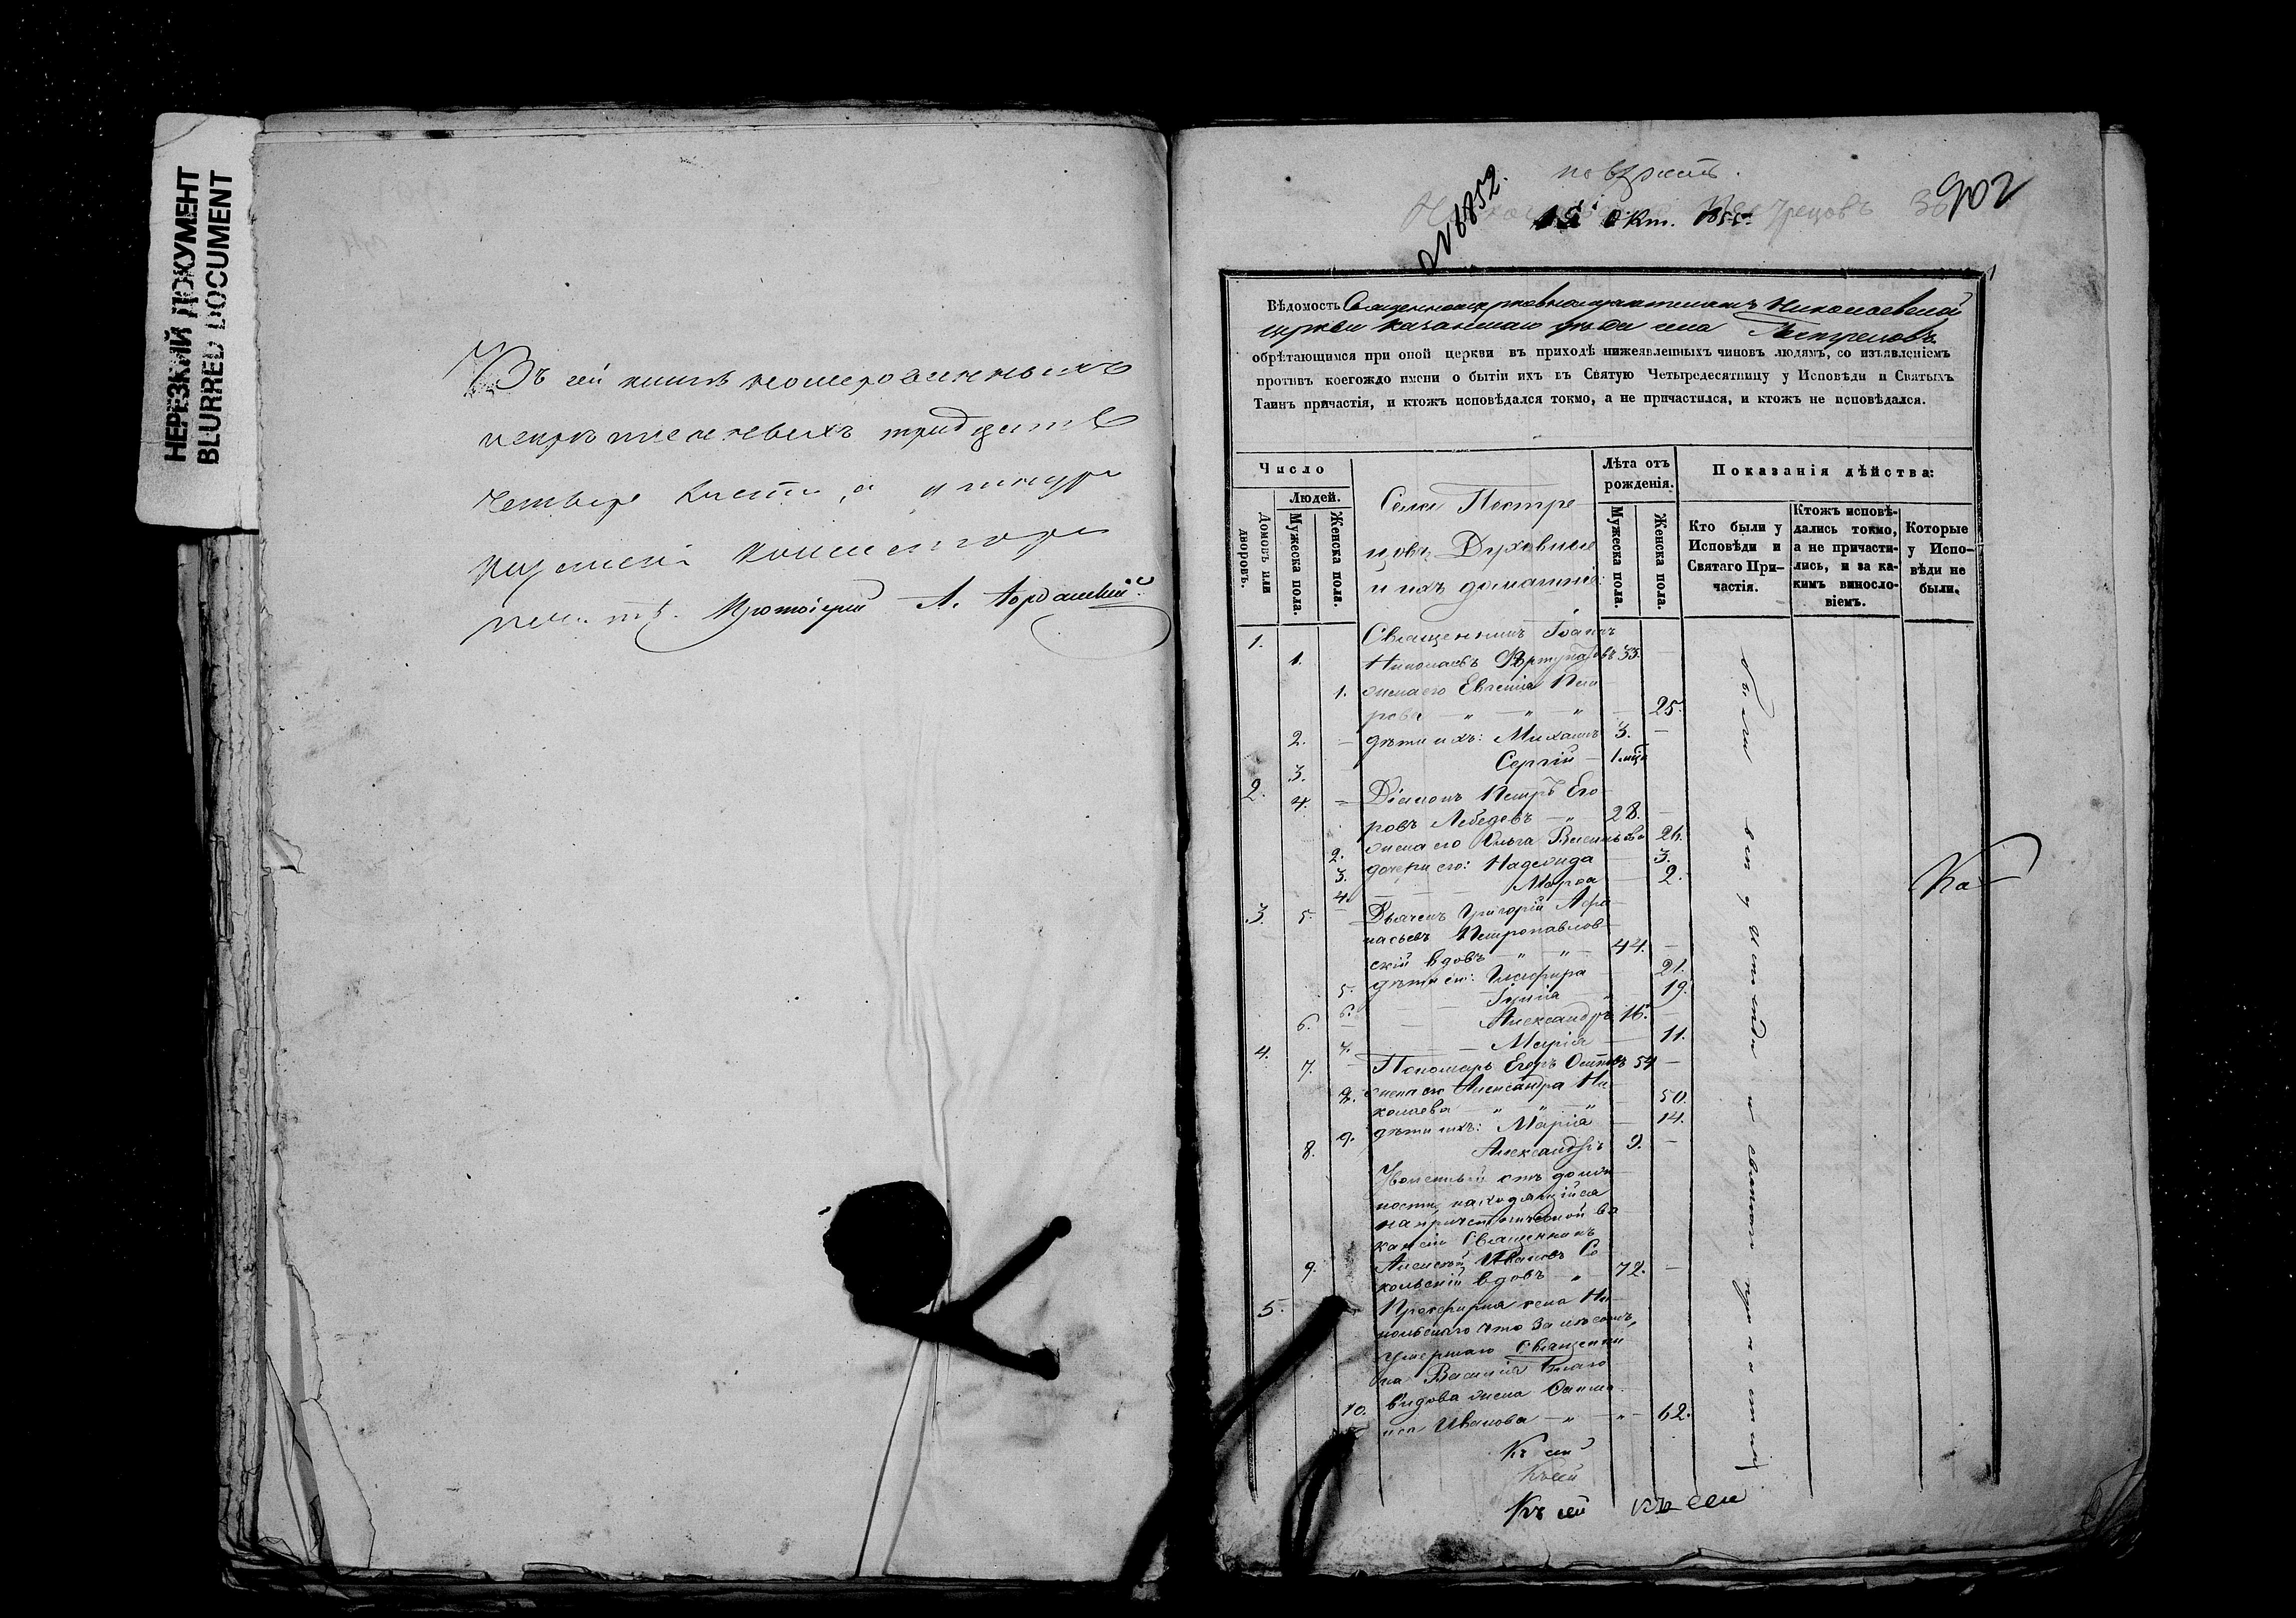 НЕРЕЗКИЙ ДОКУМЕНТ
BLURRED DOCUMENT
Въ сей книгѣ номерованныхъ
тридцать
четыре листа, а
Протоіерей А.
№ 6852.
902
Окт.
Вѣдомость Священноцерковнослужителямъ Николаевской
церкви Казанскаго уѣзда села Пестрецовъ
обрѣтающимся при оной церкви въ приходѣ нижеявленныхъ чиновъ людямъ, со изъявленіемъ
противъ коегождо имени о бытіи ихъ въ Святую Четыредесятницу у Исповѣди и Святыхъ
Таинъ причастія, и ктожъ исповѣдался токмо, а не причастился, и ктожъ не исповѣдался.
Число
Людей.
Домовъ или дворовъ.
Мужеска пола.
Женска пола.
Села Пестре
цовъ Духовные
и ихъ домашніе:
Лѣта отъ рожденія.
Мужеска пола.
Женска пола.
Показанія дѣйства:
Кто были у Исповѣди и Святаго Причастія.
Ктожъ исповѣдались токмо, а не причастились, и за какимъ винословіемъ.
Которые у Исповѣди не были.
1. Священникъ Іоаннъ
1. Николаевъ 33.
1. жена его Евгенія Пет
рова " " " 25.
2. дѣти ихъ: Михаилъ 3.
3. Сергій
2. 4. Діаконъ Петръ Его
ровъ Лебедевъ " 28.
2. жена его Ольга Васильева 26.
3. дочери его: Надежда 3.
4. Марѳа 2.
3. 5. Дьячекъ Григорій Афа
насьевъ Петропавлов
скій вдовъ " " 44.
5. дѣти его: Глафира 21.
6. 19.
6. Александръ 16.
7. Марія 11.
4. 7. Пономарь Егоръ Осиповъ 54
8. жена его Александра Ни
колаева " " " 50.
9. дѣти ихъ: Марія 14.
8. Александръ 9.
Уволенный отъ долж
ности находящійся
на причетнической ва
кансіи Священникъ
9. Алексѣй Ивановъ Со
кольскій вдовъ " 72.
5. Просфирня села Ни
кольскаго что за лѣсомъ,
умершаго Священни
ка Василія Благо
10. видова жена
Иванова " " 62.
были вси у исповѣди и святаго причастія
Ка
Къ сей
Къ сей
Къ сей къ сей